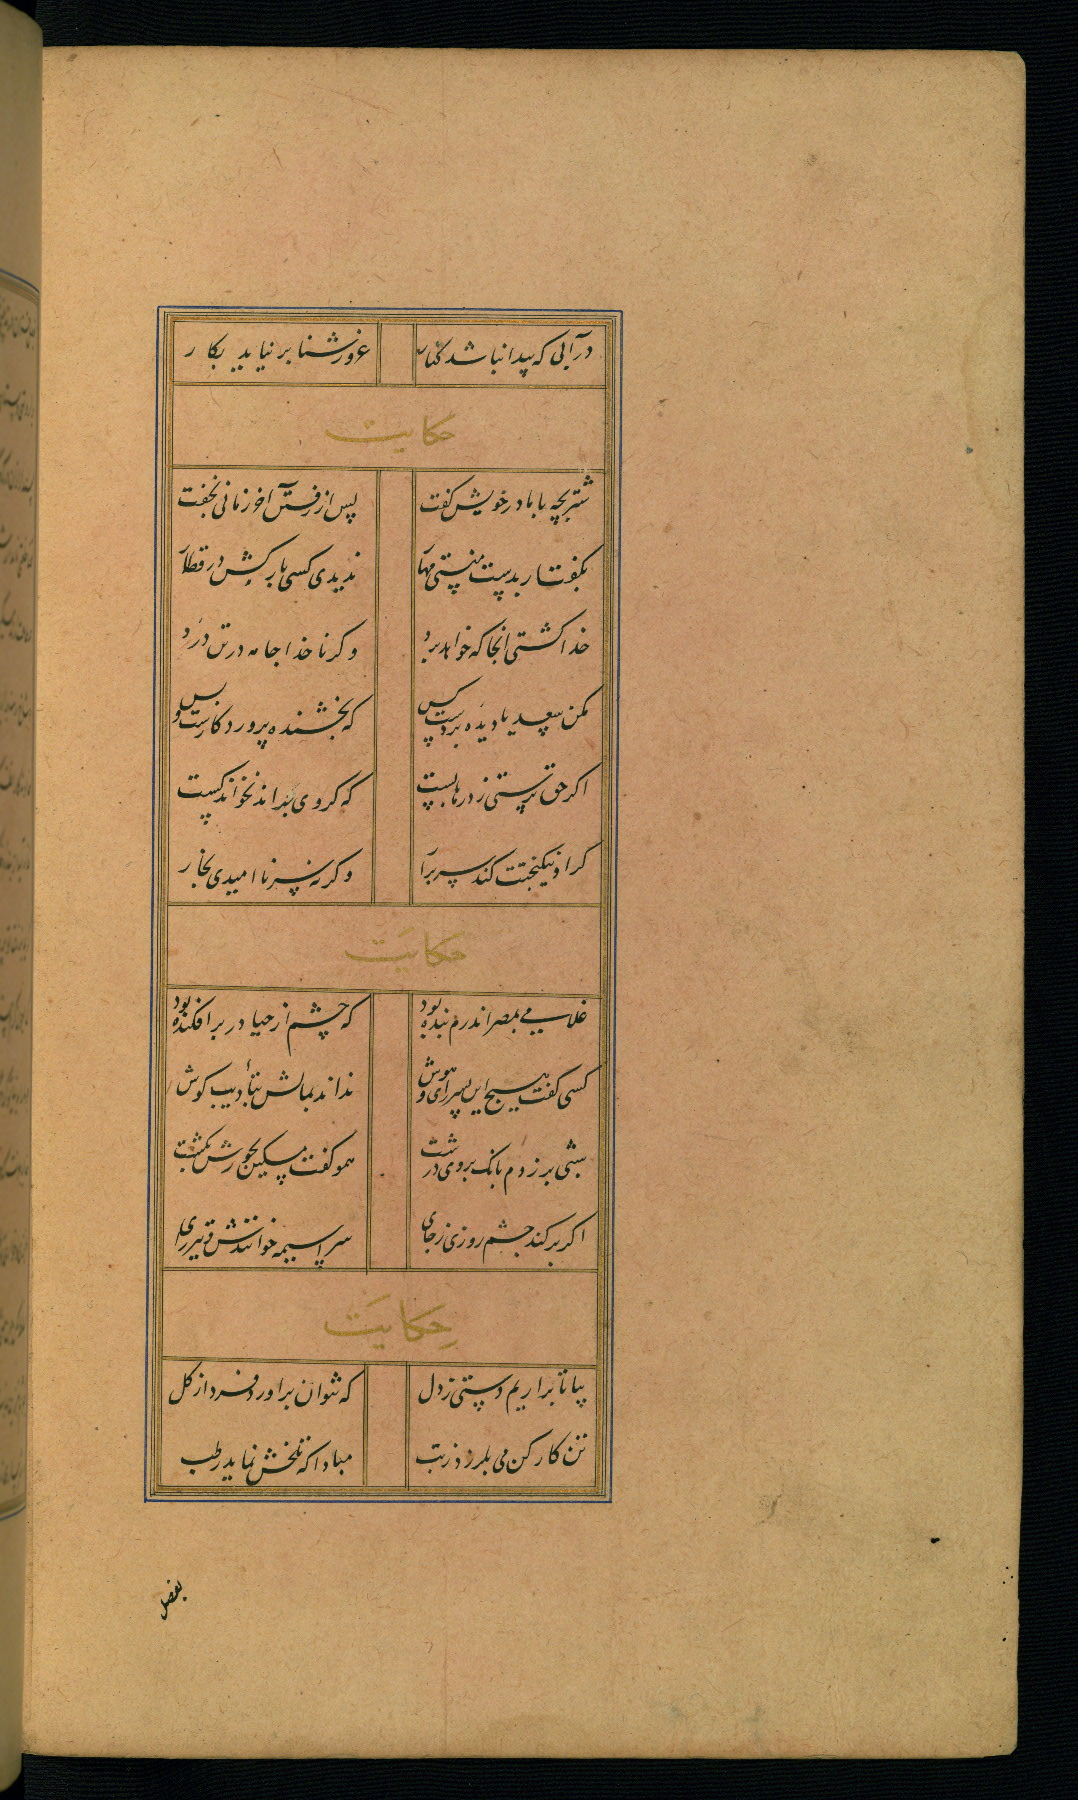 در آبی که پیدا نباشد کنار غرور شنا بر نیاید بکار
حکایت
شتر بچه با مادر خویش گفت پس از رفتن آخر زمانی نخفت
بگفت ار بدستمنستی مهار ندیدی کسی بارکش در قطار
خدا کشتی انجا که خواهد برد وگر ناخدا جامه در تن درد
مکن سعدیا دیده بر دست کس که بخشنده پروردکارست و بس
اگر حق پرستی ز درها بست که گر وی براند نخواند کست
گر او نیکبختت کند سر برار وگر نه سر ناامیدی بخار
حکایت
غلامی بمصر اندرم بنده بود که چشم از حیا در بر افکنده بود
کسی گفت هیچ این پسر رای و هوش نداند بمالش بتأدیب گوش
شبی بر زدم بانگ بر وی درشت همو گفت مسکین بجورش بکشت
اگر بر کند خشم روزی ز جای سراسیمه خوانندش و تیره رای
حکایت
بیا تا براریم دستی ز دل که نتوان براورد فردا ز گل
تن کارکن می بلرزد ز تب مبادا که نخلش نیاید رطب
بفصل